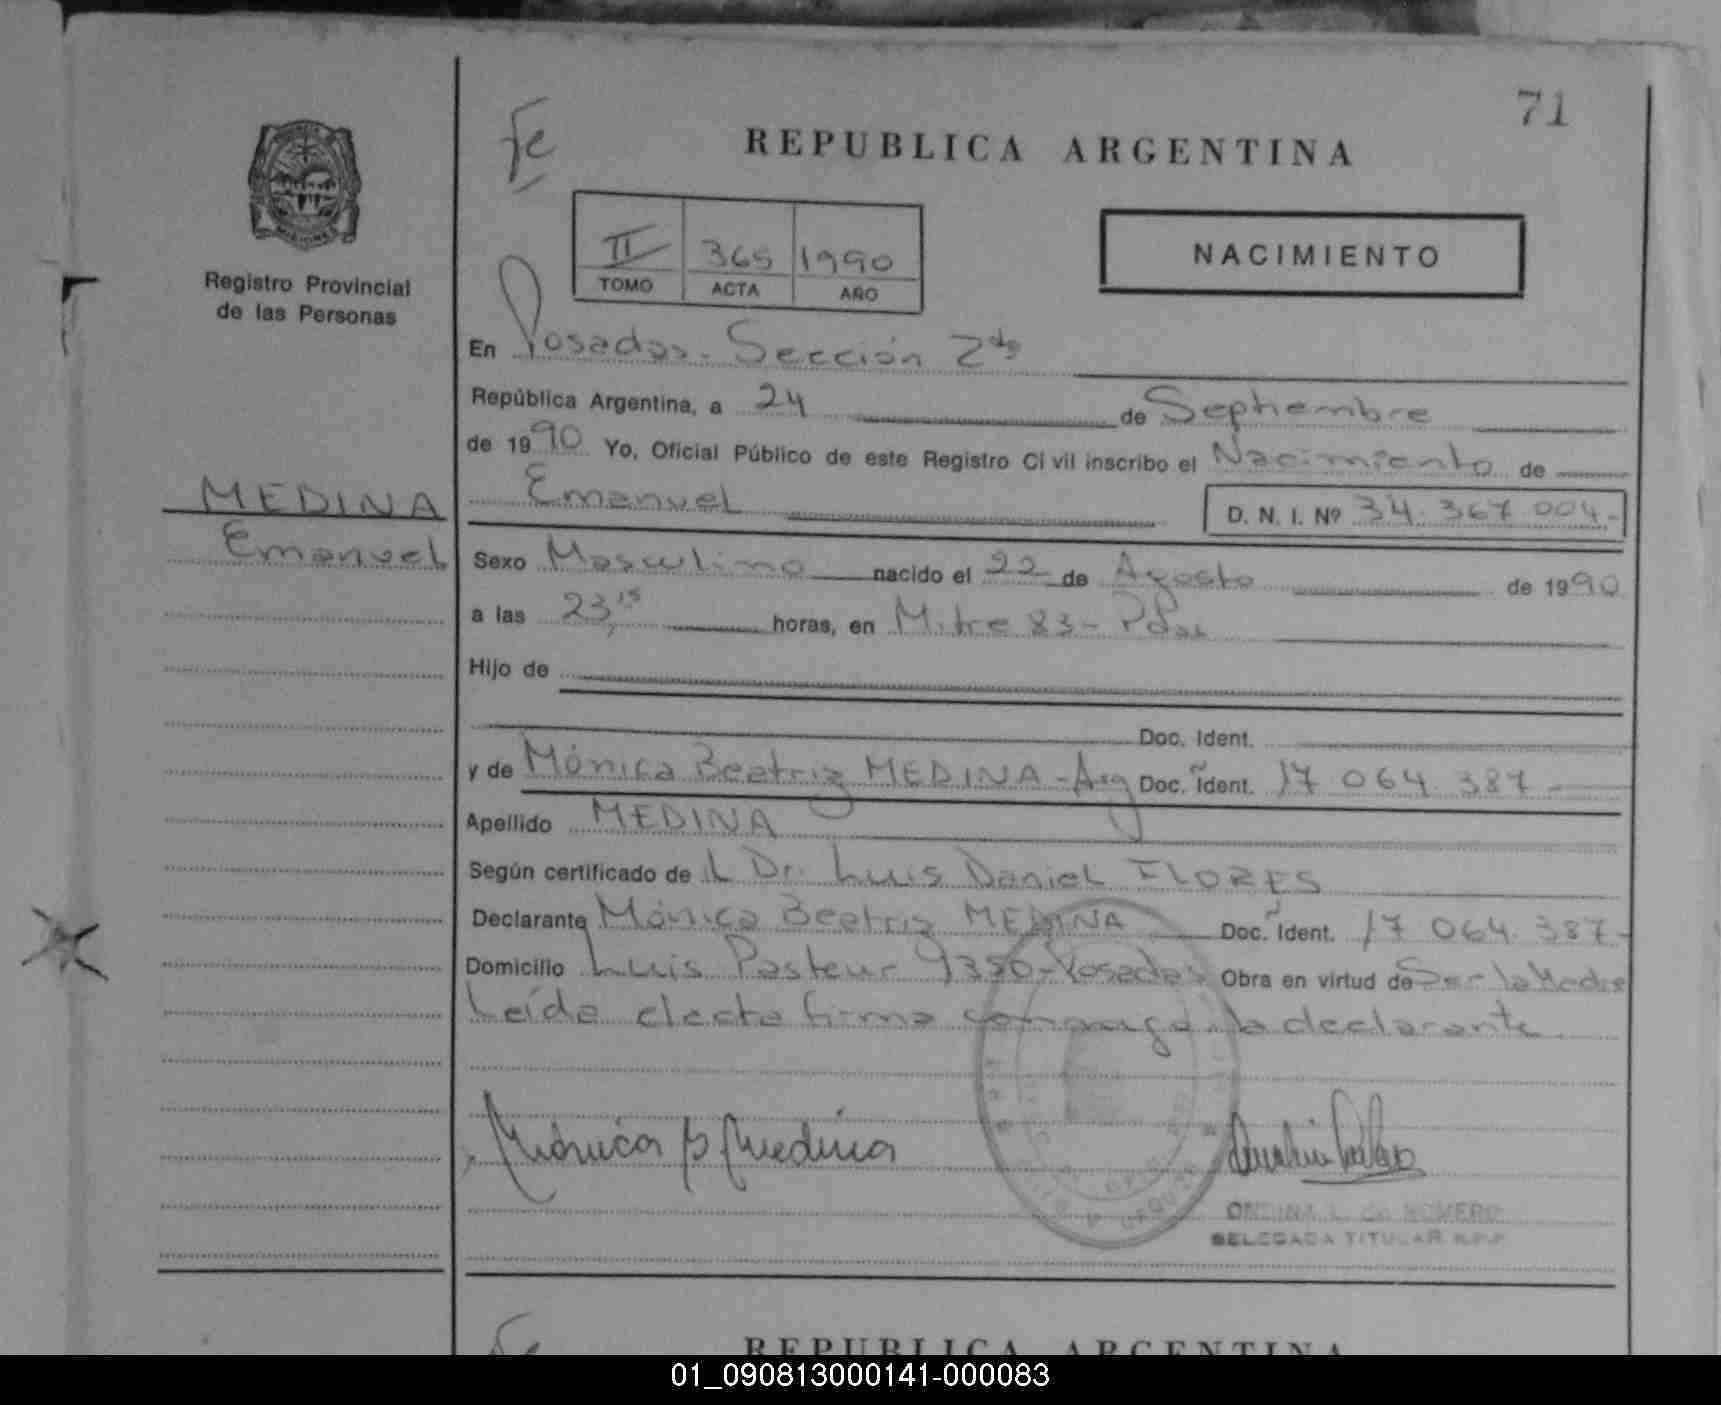 71
Fe
REPUBLICA ARGENTINA
II 365 1990
TOMO ACTA AÑO
NACIMIENTO
MISIONES
Registro Provincial
de las Personas
En Posadas - Sección 2da
República Argentina, a 24 de Septiembre
de 1990 Yo, Oficial Público de este Registro Civil inscribo el Nacimiento de
MEDINA
Emanuel
Emanuel D. N. I. Nº 34.367.004-
Sexo Masculino nacido el 22 de Agosto de 1990
a las 23,15 horas, en Mitre 83 - Pdas
Hijo de
Doc. Ident.
y de Mónica Beatriz MEDINA - Arg Doc. Ident. 17 064. 387 -
Apellido MEDINA
Según certificado de L Dr. Luis Daniel FLORES
Declarante Mónica Beatriz MEDINA Doc. Ident. 17 064. 387-
Domicilio Luis Pasteur 9350 - Posadas Obra en virtud de Ser la Madre
Leída el acta firma conmigo la declarante
Mónica B Medina
ONDINA L. de ROMERO
DELEGADA TITULAR R.P.P.
Fe
REPUBLICA ARGENTINA
01_090813000141-000083